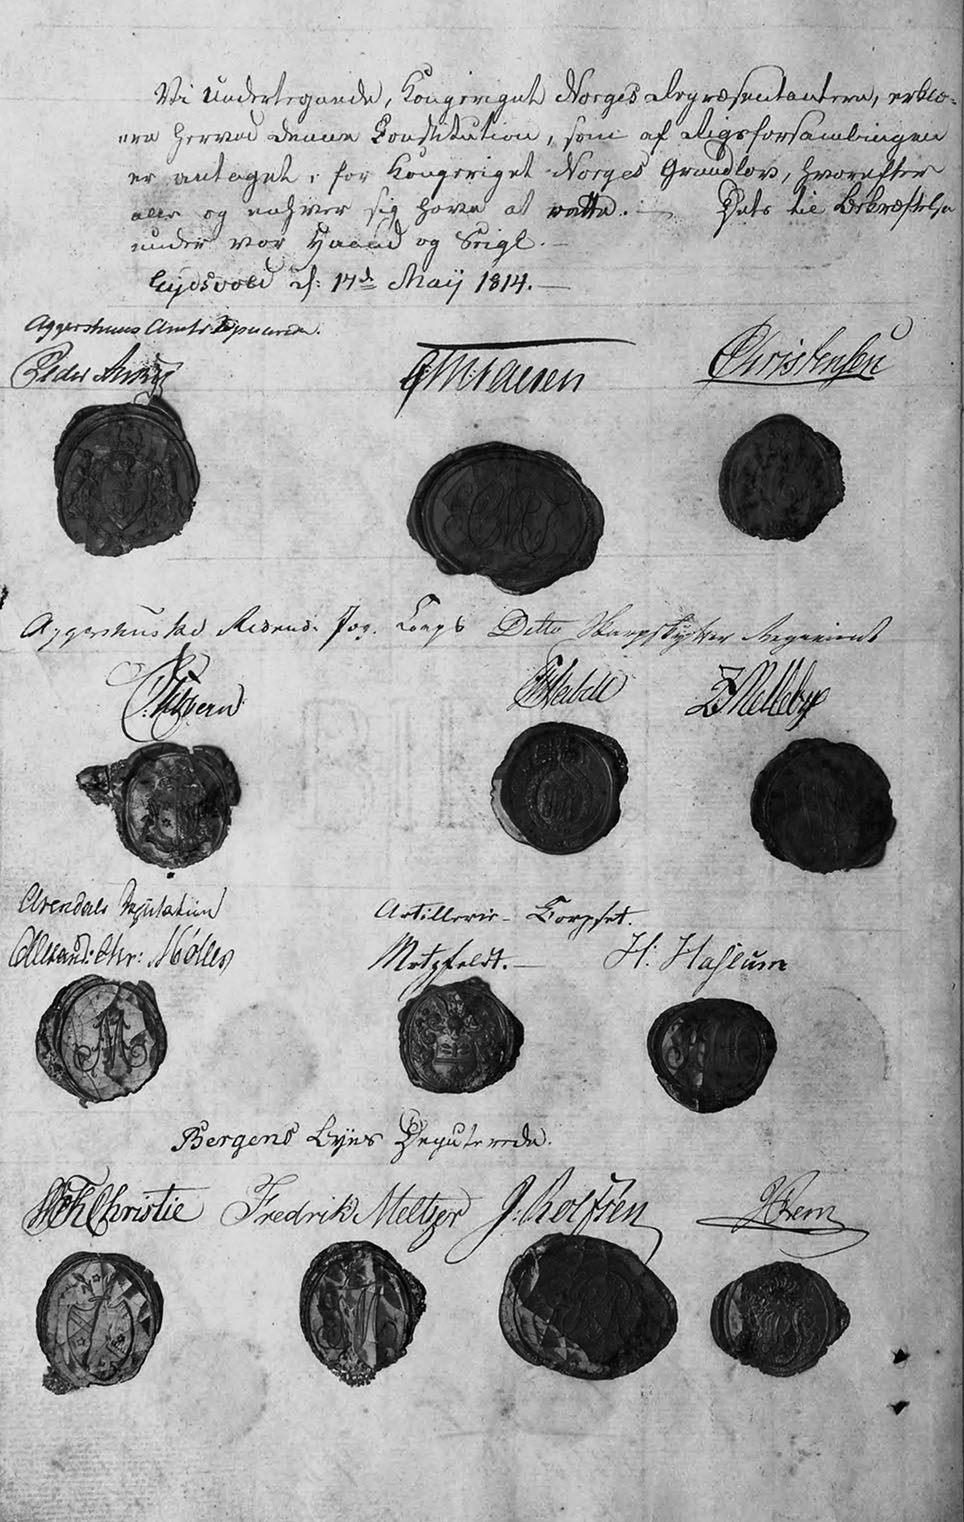 Vi undertegnede, Kongeriget Norges Repræsentantere, erklæ-
re herved denne Constitution, som af Rigsforsamlingen
er antaget, for Kongeriget Norges Grundlov, hvorefter
alle og enhver sig have at rette. — Dets til Bekræftelse
under vor Haand og Seigl. —
Eydsvold d: 17d Maij 1814. —
Aggershuus Amts Deputerede.
Peder Anker
CMFalsen
Christensen
Aggershuske Ridend: Jæg. Corps
Ditto Skarpskytter Regiment
Heidmann
ZMellebye
Arendals Deputation
Alexand: Chr: Möller
Artillerie-Corpset.
Motzfeldt. —
H: Haslum
Bergens Byes Deputerede.
WFKChristie Fredrik Meltzer J: Rolfsen JRein